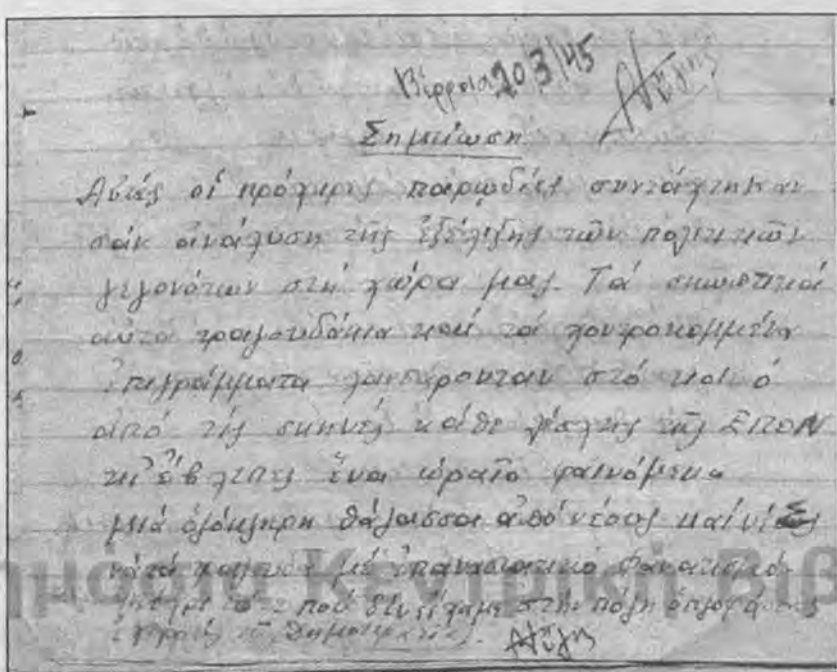 Βέρροια 20 3/45
Σημείωση
Αὐτές οἱ πρόχειρες παρωδίες συντάχτηκαν
σάν ἀνάλυση τῆς ἐξέλιξης τῶν πολιτικῶν
γεγονότων στή χώρα μας. Τά σκωπτικά
αὐτά τραγουδάκια καί τά χοντροκομμένα
ἐπιγράμματα λανσάρονταν στό κοινό
ἀπό τίς σκηνές κάθε λέσχης τῆς ΕΠΟΝ
κι' ἔβλεπες ἕνα ὡραῖο φαινόμενο
μιά ὁλόκληρη θάλασσα ἀπό νέους καί νέες
μέ ἐπαναστατικό φανατισμό
πού δέν εἴχαμε στήν πόλη
ημόσια Κεντρική Βιβ